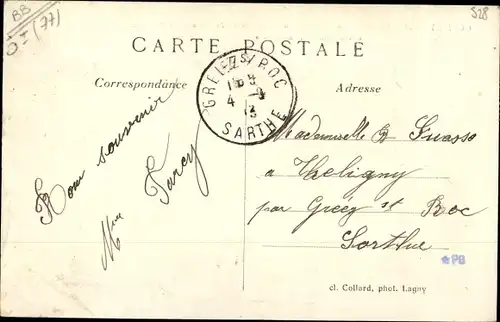 BB
(77)
S28
CARTE POSTALE
Correspondance
Adresse
GREEZ S/ ROC
4 - 9
13
SARTHE
Bon souvenir
Mme Farcy
Mademoiselle B
a Theligny
par Gréez st Roc
Sarthe
★PB
cl. Collard, phot. Lagny